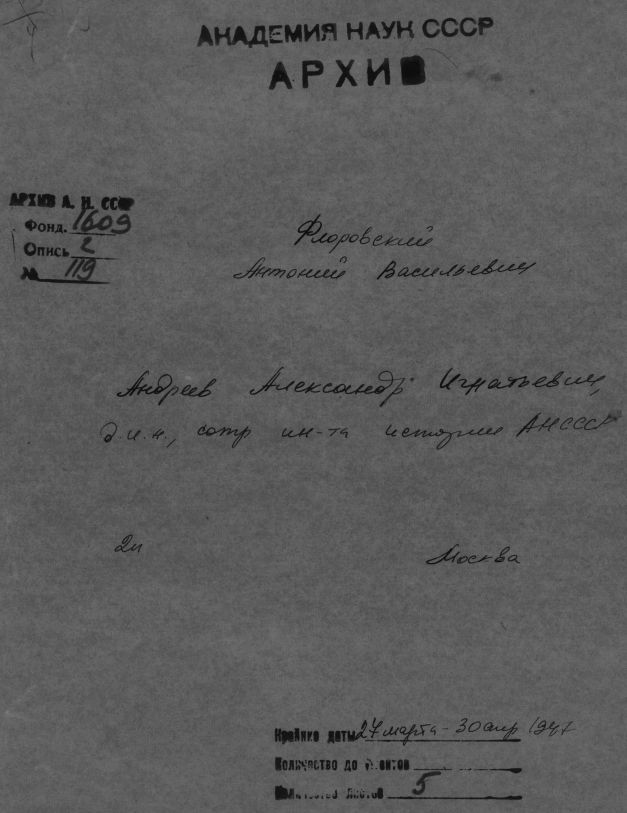 АКАДЕМИЯ НАУК СССР
АРХИВ
АРХИВ А. Н. СССР
Фонд. 1609
Опись 2
№ 119
Флоровский
Антоний Васильевич
Андреев Александр Игнатьевич,
д.и.н., сотр ин-та истории АНСССР
2п
Москва
Крайние даты 27 марта - 30 апр 1947
Количество
Количество листов 5